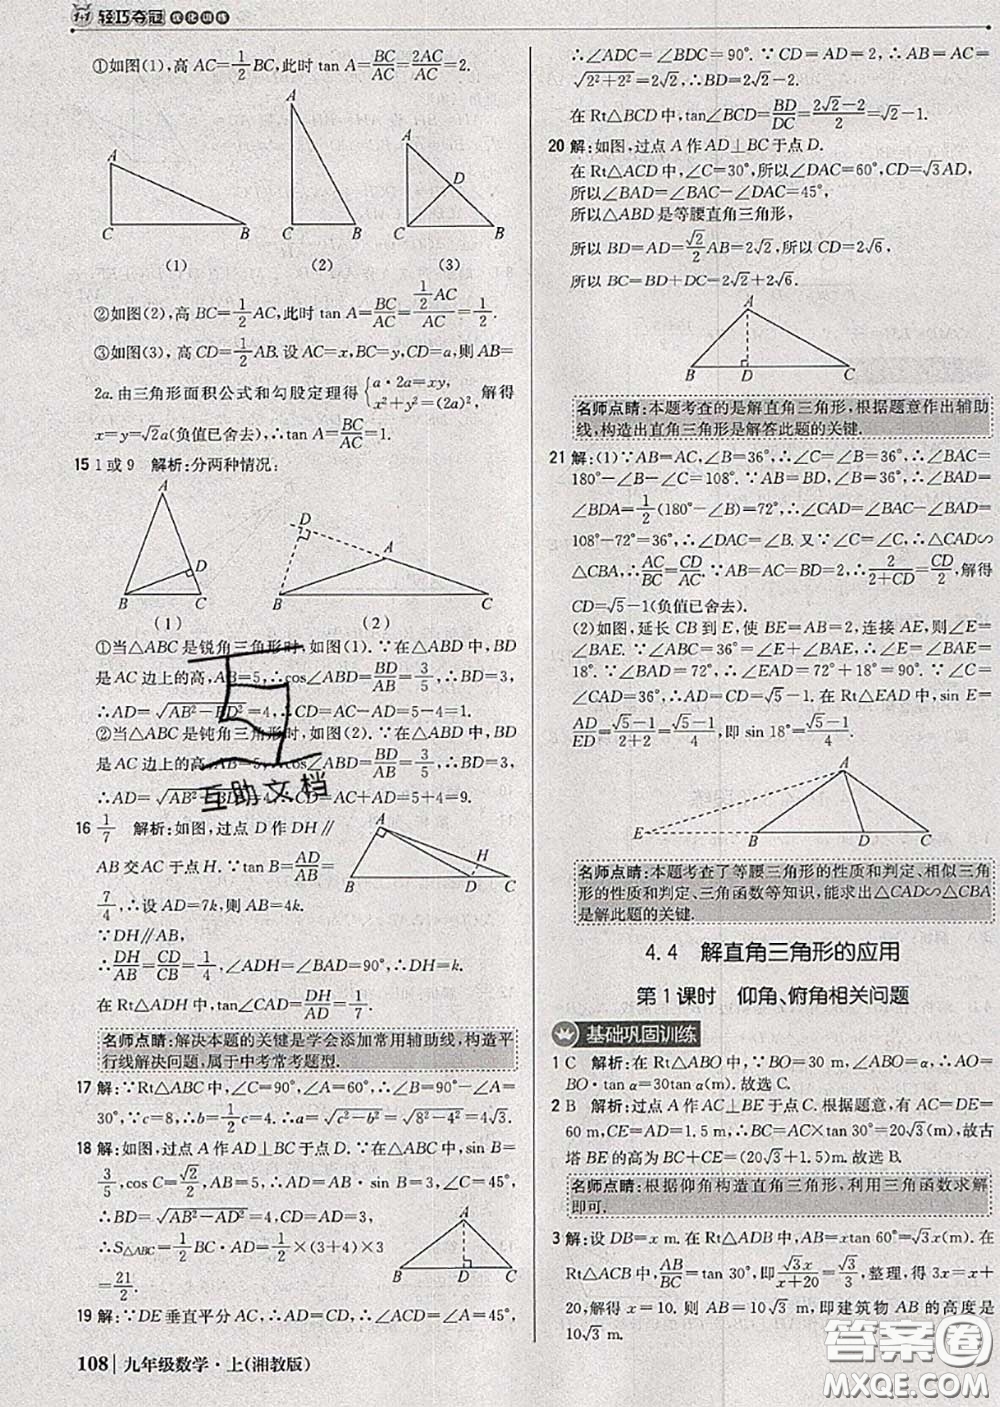 1+1 轻巧夺冠 优化训练
①如图(1),高 AC=1/2BC,此时 tan A=BC/AC=2AC/AC=2.
A
C
B
(1)
A
C
B
(2)
A
D
C
B
(3)
②如图(2),高 BC=1/2AC,此时 tan A=BC/AC=(1/2 AC)/AC=1/2.
③如图(3),高 CD=1/2AB.设 AC=x,BC=y,CD=a,则 AB=
2a.由三角形面积公式和勾股定理得{a·2a=xy, x²+y²=(2a)²,解得
x=y=√2a(负值已舍去),∴tan A=BC/AC=1.
15 1 或 9 解析:分两种情况:
A
D
B
C
(1)
D
A
B
C
(2)
①当△ABC 是锐角三角形时,如图(1).∵在△ABD 中,BD
是 AC 边上的高,AB=5,∴cos∠ABD=BD/AB=3/5,∴BD=3,
∴AD=√(AB²−BD²)=4,∴CD=AC−AD=5−4=1.
②当△ABC 是钝角三角形时,如图(2).∵在△ABD 中,BD
是 AC 边上的高,AB=5,∴cos∠ABD=BD/AB=3/5,∴BD=3,
∴AD=√(AB²−BD²)=4,∴CD=AC+AD=5+4=9.
16 1/7 解析:如图,过点 D 作 DH∥
AB 交 AC 于点 H.∵tan B=AD/AB=
7/4,∴设 AD=7k,则 AB=4k.
A
H
B
D
C
∵DH∥AB,
∴DH/AB=CD/CB=1/4,∠ADH=∠BAD=90°,∴DH=k.
在 Rt△ADH 中,tan∠CAD=DH/AD=1/7.
名师点睛:解决本题的关键是学会添加常用辅助线,构造平
行线解决问题,属于中考常考题型.
17 解:∵Rt△ABC 中,∠C=90°,∠A=60°,∴∠B=90°−∠A=
30°,∵c=8,∴b=1/2c=4.∴a=√(c²−b²)=√(8²−4²)=4√3.
18 解:如图,过点 A 作 AD⊥BC 于点 D.∵在△ABC 中,sin B=
3/5,cos C=√2/2,AB=5,∴AD=AB·sin B=3,∠C=45°,
∴BD=√(AB²−AD²)=4,∴CD=AD=3,
∴S△ABC=1/2BC·AD=1/2×(3+4)×3=
21/2.
A
B
D
C
19 解:∵DE 垂直平分 AC,∴AD=CD,∴∠ACD=∠A=45°,
108 九年级数学·上(湘教版)
∴∠ADC=∠BDC=90°.∵CD=AD=2,∴AB=AC=
√(2²+2²)=2√2,∴BD=2√2−2.
在 Rt△BCD 中,tan∠BCD=BD/DC=(2√2−2)/2=√2−1.
20 解:如图,过点 A 作 AD⊥BC 于点 D.
在 Rt△ACD 中,∠C=30°,所以∠DAC=60°,CD=√3AD,
所以∠BAD=∠BAC−∠DAC=45°,
所以△ABD 是等腰直角三角形,
所以 BD=AD=√2/2AB=2√2,所以 CD=2√6,
所以 BC=BD+DC=2√2+2√6.
A
B
D
C
名师点睛:本题考查的是解直角三角形,根据题意作出辅助
线,构造出直角三角形是解答此题的关键.
21 解:(1)∵AB=AC,∠B=36°,∴∠C=∠B=36°,∴∠BAC=
180°−∠B−∠C=108°.∵AB=BD,∠B=36°,∴∠BAD=
∠BDA=1/2(180°−∠B)=72°,∴∠DAC=∠BAC−∠BAD=
108°−72°=36°,∴∠DAC=∠B.又∵∠C=∠C,∴△CAD∽
△CBA,∴AC/BC=CD/AC.∵AB=AC=BD=2,∴2/(2+CD)=CD/2,解得
CD=√5−1(负值已舍去).
(2)如图,延长 CB 到 E,使 BE=AB=2,连接 AE,则∠E=
∠BAE.∵∠ABC=36°=∠E+∠BAE,∴∠E=∠BAE=
18°.∵∠BAD=72°,∴∠EAD=72°+18°=90°.∵∠C=
∠CAD=36°,∴AD=CD=√5−1.在 Rt△EAD 中,sin E=
AD/ED=(√5−1)/(2+2)=(√5−1)/4,即 sin 18°=(√5−1)/4.
A
E
B
D
C
名师点睛:本题考查了等腰三角形的性质和判定、相似三角
形的性质和判定、三角函数等知识,能求出△CAD∽△CBA
是解此题的关键.
4.4 解直角三角形的应用
第1课时 仰角、俯角相关问题
基础巩固训练
1 C 解析:在 Rt△ABO 中,∵BO=30 m,∠ABO=α,∴AO=
BO·tan α=30tan α(m).故选 C.
2 B 解析:过点 A 作 AC⊥BE 于点 C.根据题意,有 AC=DE=
60 m,CE=AD=1.5 m,∴BC=AC×tan 30°=20√3(m),故古
塔 BE 的高为 BC+CE=(20√3+1.5)m.故选 B.
名师点睛:根据仰角构造直角三角形,利用三角函数求解
即可.
3 解:设 DB=x m.在 Rt△ADB 中,AB=x·tan 60°=√3x m.在
Rt△ACB 中,AB/BC=tan 30°,即√3x/(x+20)=√3/3,整理,得 3x=x+
20,解得 x=10.则 AB=10√3 m,即建筑物 AB 的高度是
10√3 m.
互助文档
答案圈
MXQE.COM